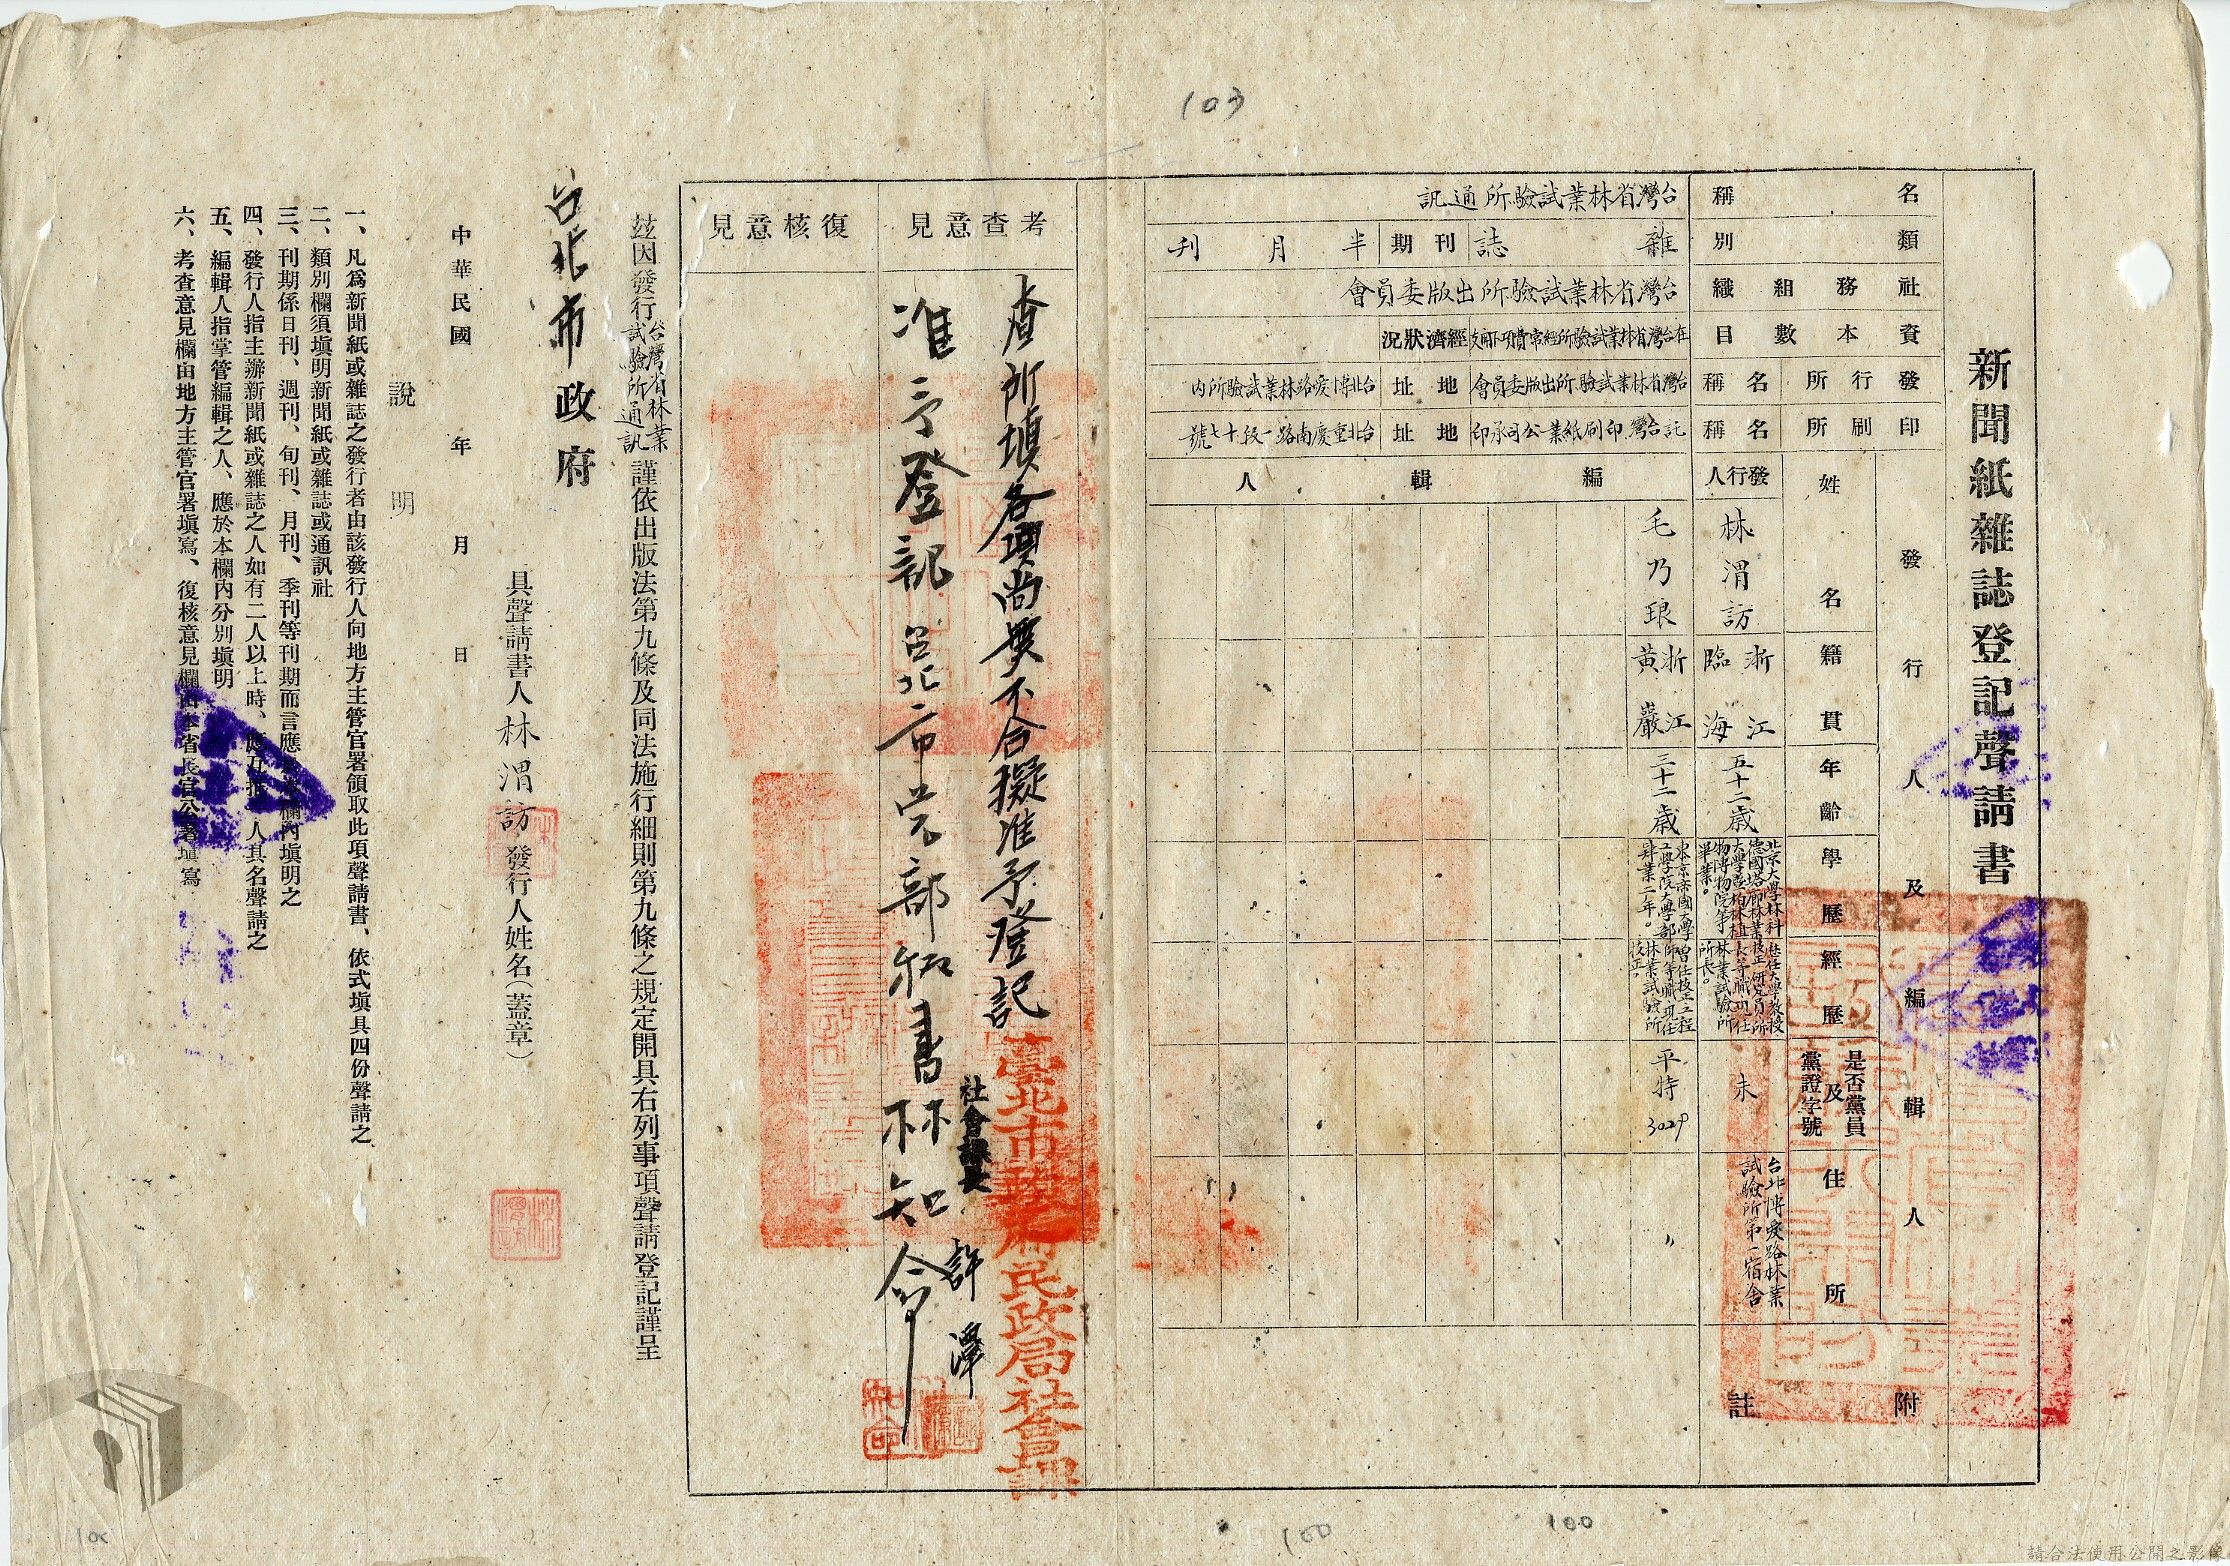 103
新聞紙雜誌登記聲請書
名稱
台灣省林業試驗所通訊
類別
雜誌
刊期
半月刊
社務組織
台灣省林業試驗所出版委員會
資本數目
在台灣省林業試驗所經常費項下開支
經濟狀況
發行所名稱
台灣省林業試驗所出版委員會
地址
台北博愛路林業試驗所內
印刷所名稱
託台灣印刷紙業公司承印
地址
台北重慶南路一段十七號
發行人及編輯人
姓名
籍貫
年齡
學歷
經歷
是否黨員及黨證字號
住所
發行人
林渭訪
浙江臨海
五十二歲
北京大學林科
德國塔廊林業
大學及柏林植
物博物院等
畢業。
歷任大學教授
技正研究員所
長等職現任
林業試驗所
所長。
未
台北博愛路林業
試驗所第一宿舍
編輯人
毛乃琅
浙江黃巖
三十二歲
東京帝國大學
工學院大學部
肄業二年。
曾任技正工程
師等職現任
林業試驗所
技正
平特
3029
〃
附註
考查意見
查所填各項尚無不合擬准予登記
臺北市
民政局社會課
社會課長
許澤
准予登記
台北市党部秘書林知命
復核意見
茲因發行台灣省林業試驗所通訊謹依出版法第九條及同法施行細則第九條之規定開具右列事項聲請登記謹呈
台北市政府
具聲請書人林渭訪發行人姓名(蓋章)
中華民國 年 月 日
說明
一、凡爲新聞紙或雜誌之發行者由該發行人向地方主管官署領取此項聲請書、依式塡具四份聲請之
二、類別欄須塡明新聞紙或雜誌或通訊社
三、刊期係日刊、週刊、旬刊、月刊、季刊等刊期而言應於本欄內塡明之
四、發行人指主辦新聞紙或雜誌之人如有二人以上時、應互推一人具名聲請之
五、編輯人指掌管編輯之人、應於本欄內分別塡明
六、考查意見欄由地方主管官署塡寫、復核意見欄由本省長官公署塡寫
100
100
請合法使用公開之影像